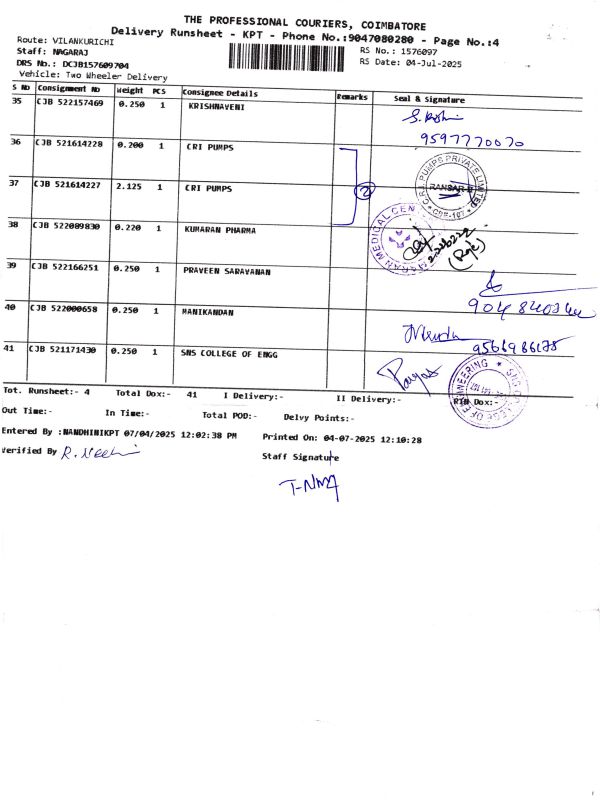 THE PROFESSIONAL COURIERS, COIMBATORE
Delivery Runsheet - KPT - Phone No.:9047080280 - Page No.:4
Route: VILANKURICHI
Staff: NAGARAJ RS No.: 1576097
DRS No.: DCJB157609704 RS Date: 04-Jul-2025
Vehicle: Two Wheeler Delivery
S No Consignment No Weight PCS Consignee Details Remarks Seal & Signature
35 CJB 522157469 0.250 1 KRISHNAVENI
9597770070
36 CJB 521614228 0.200 1 CRI PUMPS
C.R.I. PUMPS PRIVATE LIMITED
37 CJB 521614227 2.125 1 CRI PUMPS 2
38 CJB 522089830 0.220 1 KUMARAN PHARMA
MEDICAL CEN
39 CJB 522166251 0.250 1 PRAVEEN SARAVANAN
40 CJB 522000658 0.250 1 MANIKANDAN
9566986175
41 CJB 521171430 0.250 1 SNS COLLEGE OF ENGG
SNS COLLEGE OF ENGINEERING
Tot. Runsheet:- 4 Total Dox:- 41 I Delivery:- II Delivery:- RTN Dox:-
Out Time:- In Time:- Total POD:- Delvy Points:-
Entered By :NANDHINIKPT 07/04/2025 12:02:38 PM Printed On: 04-07-2025 12:10:28
Verified By Staff Signature